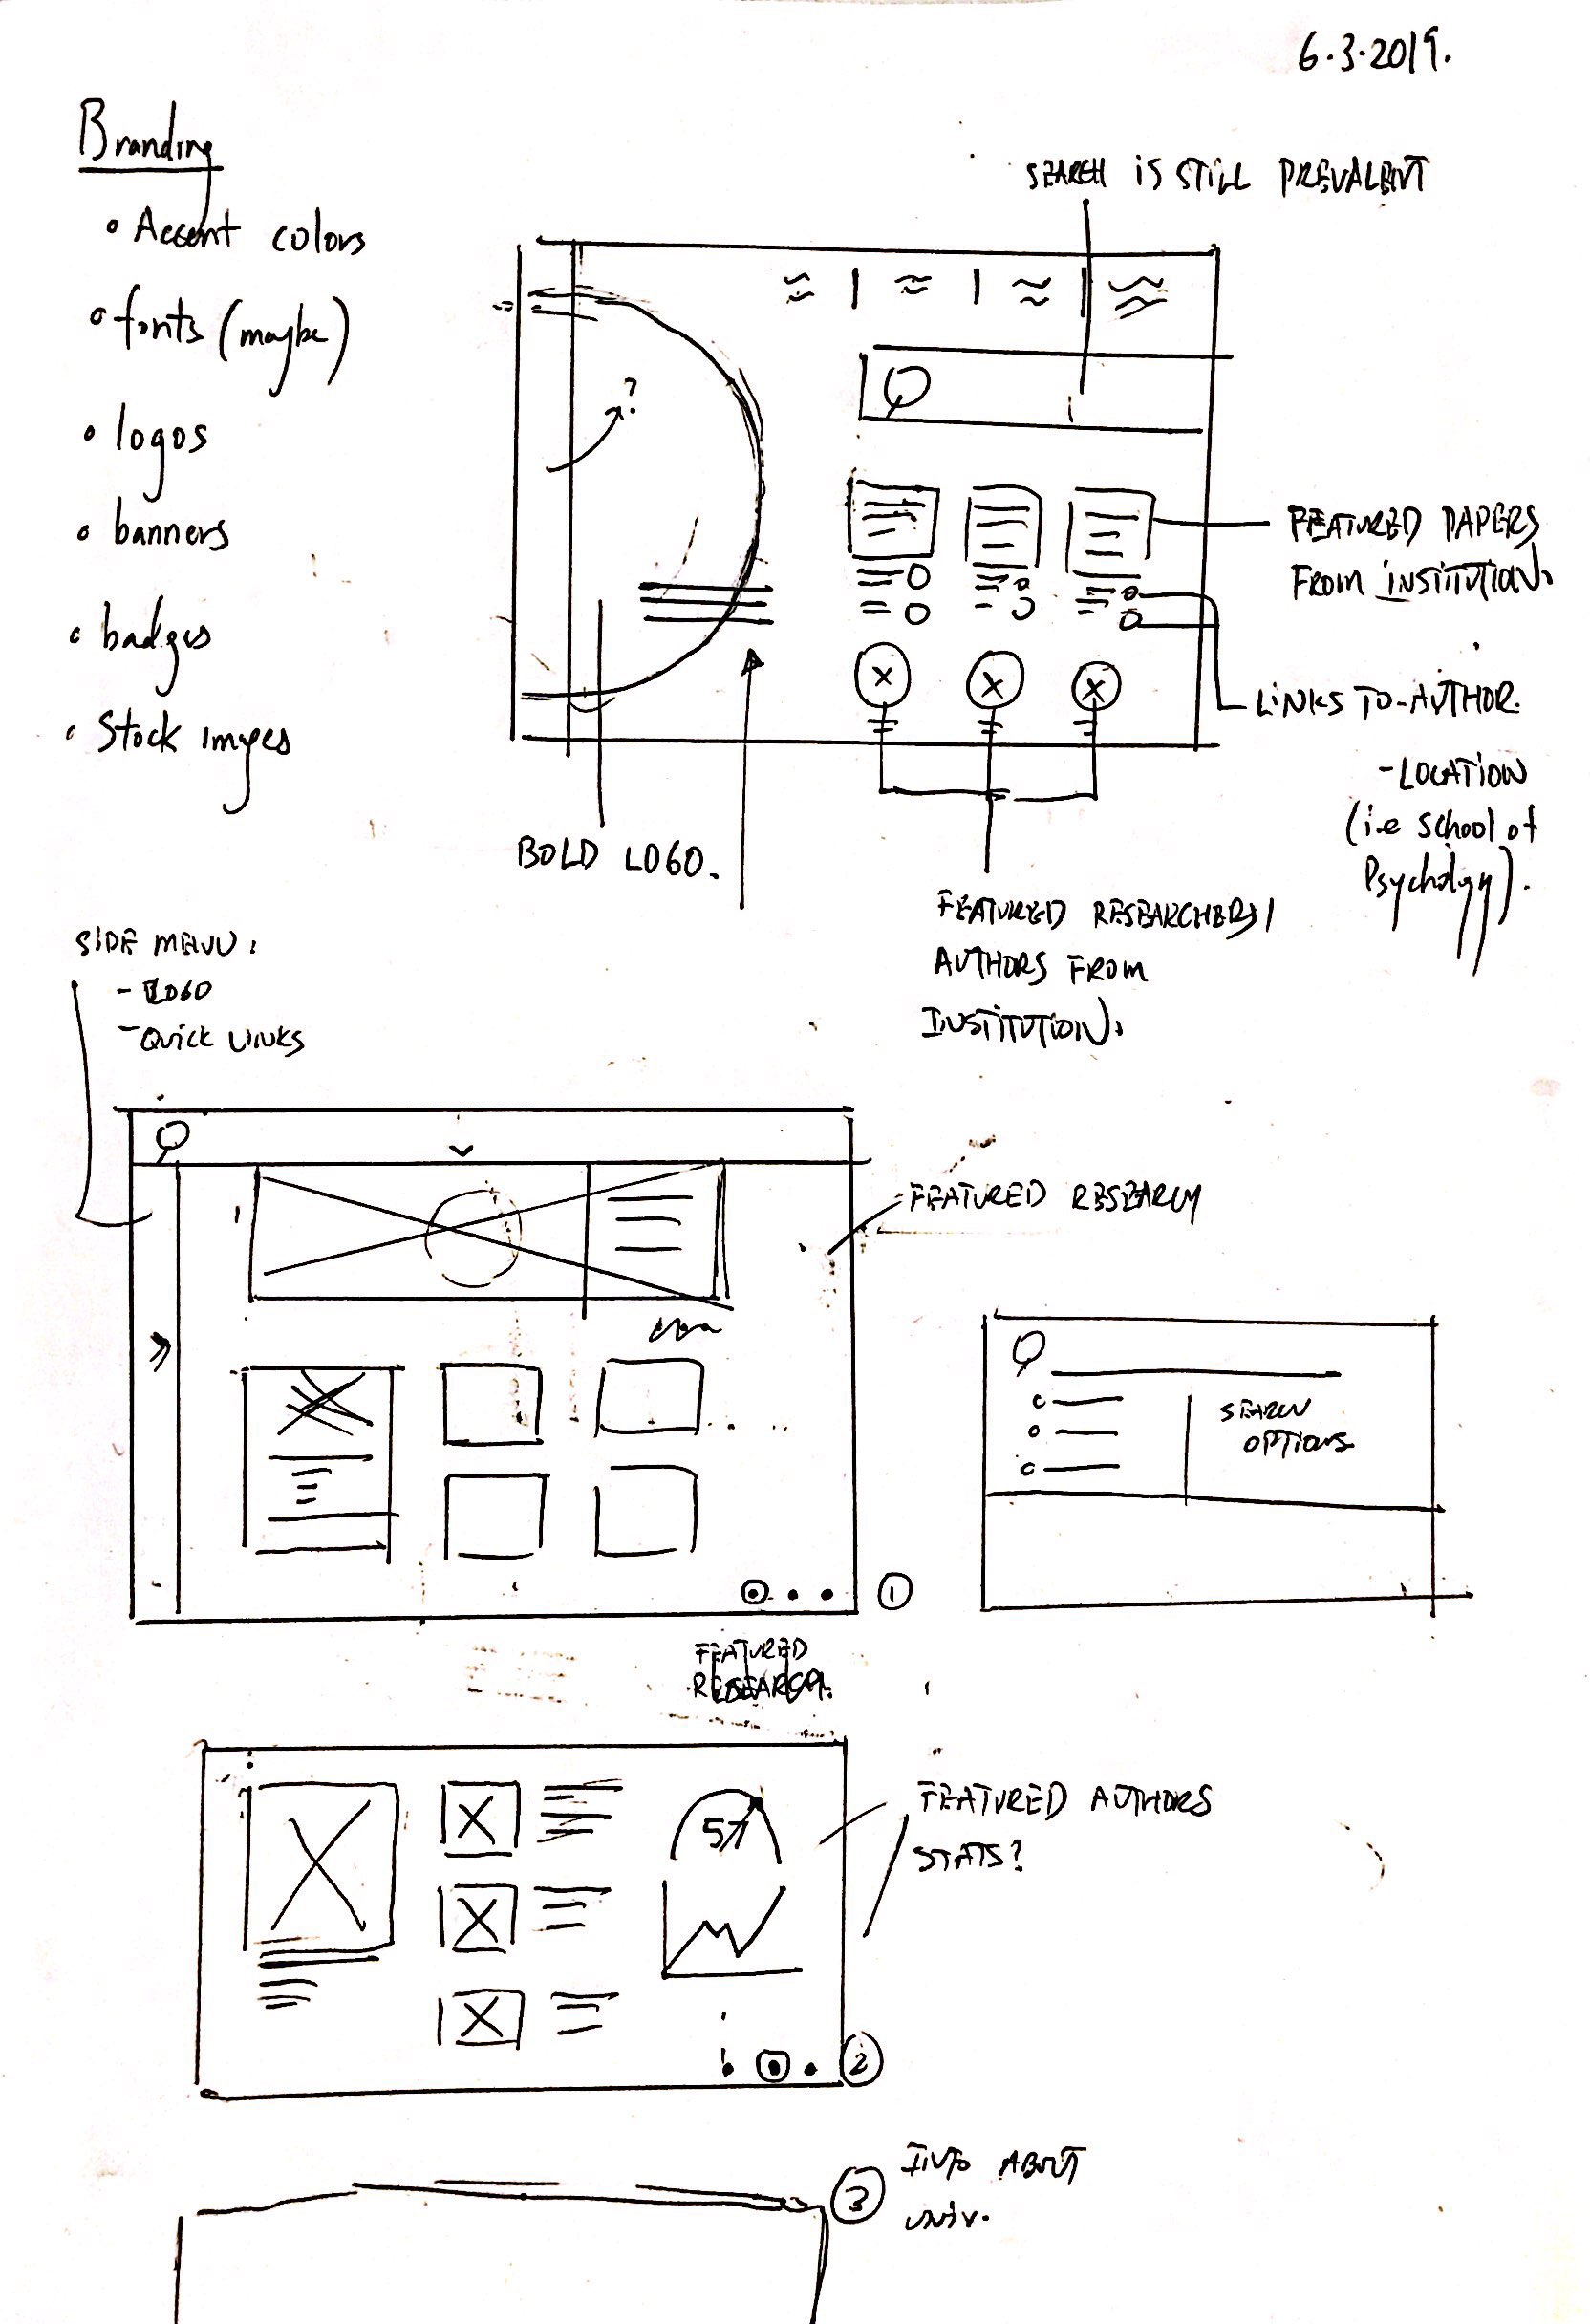 6.3.2019.
Branding
• Accent colors
• fonts (maybe)
• logos
• banners
• badges
• Stock images
SEARCH IS STILL PREVALENT
?
FEATURED PAPERS
FROM INSTITUTION.
LINKS TO-AUTHOR.
-LOCATION
(i.e School of
Psychology).
BOLD LOGO.
FEATURED RESEARCHERS/
AUTHORS FROM
INSTITUTION.
SIDE MENU:
- LOGO
- QUICK LINKS
FEATURED RESEARCH
SEARCH
OPTIONS
1
FEATURED
RESEARCH.
57
FEATURED AUTHORS
STATS?
2
3
INFO ABOUT
UNIV.